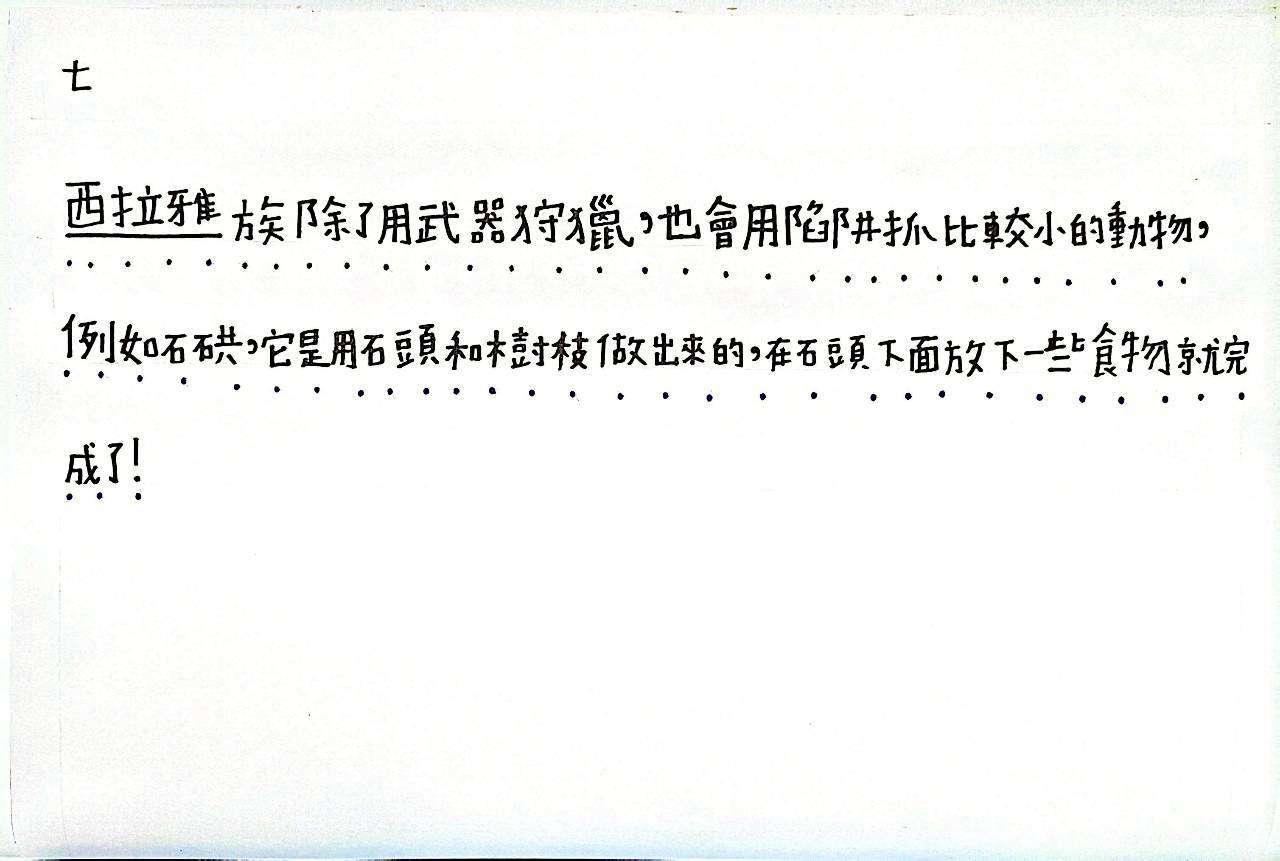 七
西拉雅族除了用武器狩獵，也會用陷阱抓比較小的動物，
例如石硔，它是用石頭和樹枝做出來的，在石頭下面放下一些食物就完
成了！